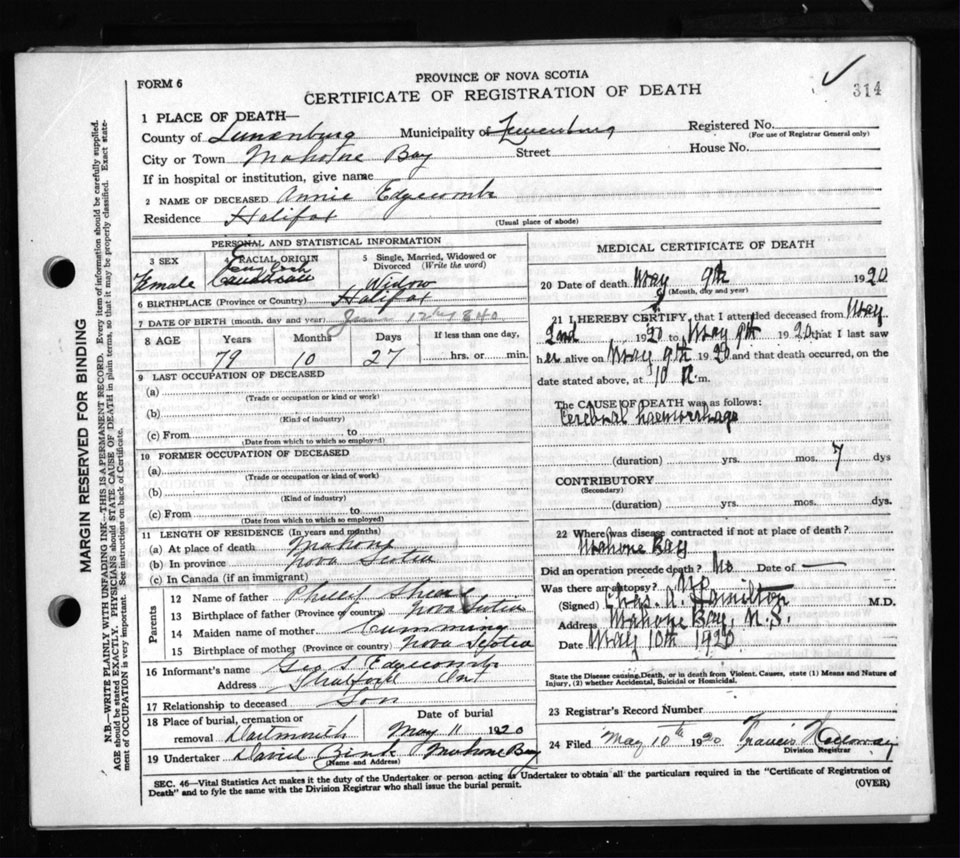 FORM 6
PROVINCE OF NOVA SCOTIA
CERTIFICATE OF REGISTRATION OF DEATH
314
1 PLACE OF DEATH—
County of Lunenburg Municipality of Lunenburg Registered No.
(For use of Registrar General only)
City or Town Mahone Bay Street House No.
If in hospital or institution, give name
2 NAME OF DECEASED Annie Edgecombe
Residence Halifax (Usual place of abode)
PERSONAL AND STATISTICAL INFORMATION
3 SEX
Female
4 RACIAL ORIGIN
Caucasian
5 Single, Married, Widowed or Divorced (Write the word)
Widow
6 BIRTHPLACE (Province or Country) Halifax
7 DATE OF BIRTH (month, day and year) June 12th 1840
8 AGE Years Months Days If less than one day,
79 10 27 hrs. or min.
9 LAST OCCUPATION OF DECEASED
(a)
(Trade or occupation or kind or work)
(b)
(Kind of industry)
(c) From to
(Date from which to which so employed)
10 FORMER OCCUPATION OF DECEASED
(a)
(Trade or occupation or kind of work)
(b)
(Kind of industry)
(c) From to
(Date from which to which so employed)
11 LENGTH OF RESIDENCE (In years and months)
(a) At place of death Mahone
(b) In province Nova Scotia
(c) In Canada (if an immigrant)
Parents
12 Name of father Philip
13 Birthplace of father (Province or country) Nova Scotia
14 Maiden name of mother Cumming
15 Birthplace of mother (Province or country) Nova Scotia
16 Informant's name Geo S. Edgecombe
Address Stratford Ont
17 Relationship to deceased Son
18 Place of burial, cremation or removal Dartmouth
Date of burial
May 11 1920
19 Undertaker David Zink Mahone Bay
(Name and Address)
MEDICAL CERTIFICATE OF DEATH
20 Date of death May 9th 1920
(Month, day and year)
21 I HEREBY CERTIFY, that I attended deceased from May
2nd 1920 to May 9th 1920 that I last saw
her alive on May 9th 1920 and that death occurred, on the
date stated above, at 10 m.
The CAUSE OF DEATH was as follows:
Cerebral haemorrhage
(duration) yrs. mos. 7 dys
CONTRIBUTORY
(Secondary)
(duration) yrs. mos. dys.
22 Where was disease contracted if not at place of death?
Mahone Bay
Did an operation precede death? No Date of —
Was there an autopsy? No
(Signed) Chas. A. Hamilton M.D.
Address Mahone Bay, N.S.
Date May 10th 1920
State the Disease causing Death, or in death from Violent Causes, state (1) Means and Nature of
Injury, (2) whether Accidental, Suicidal or Homicidal.
23 Registrar's Record Number
24 Filed May 10th 1920 Francis Holloway
Division Registrar
SEC. 46—Vital Statistics Act makes it the duty of the Undertaker or person acting as Undertaker to obtain all the particulars required in the "Certificate of Registration of
Death" and to fyle the same with the Division Registrar who shall issue the burial permit.
(OVER)
MARGIN RESERVED FOR BINDING
N.B.—WRITE PLAINLY WITH UNFADING INK—THIS IS A PERMANENT RECORD. Every item of information should be carefully supplied.
AGE should be stated EXACTLY. PHYSICIANS should STATE CAUSE OF DEATH in plain terms, so that it may be properly classified. Exact state-
ment of OCCUPATION is very important. See instructions on back of Certificate.